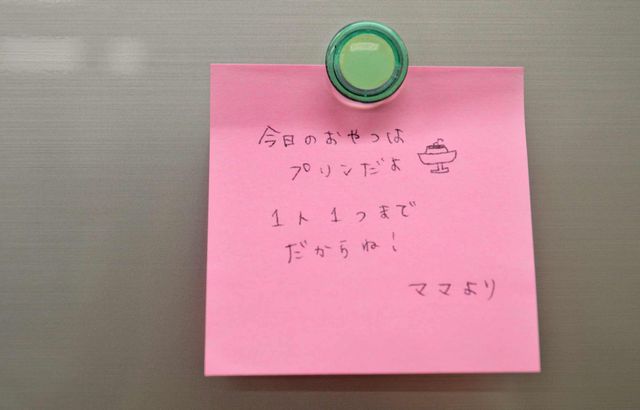 今日のおやつは
プリンだよ
1人1つまで
だからね!
ママより